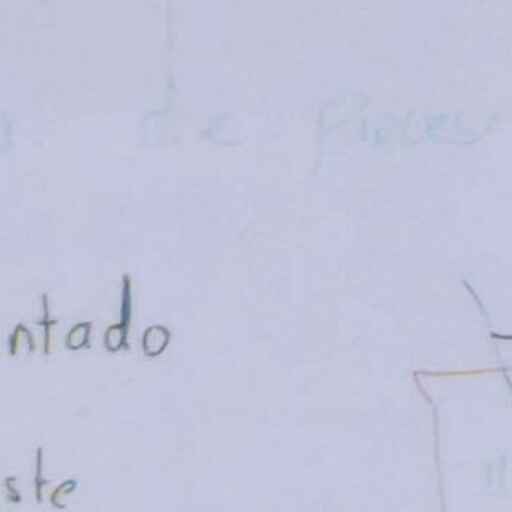 de Proces
ntado
ste